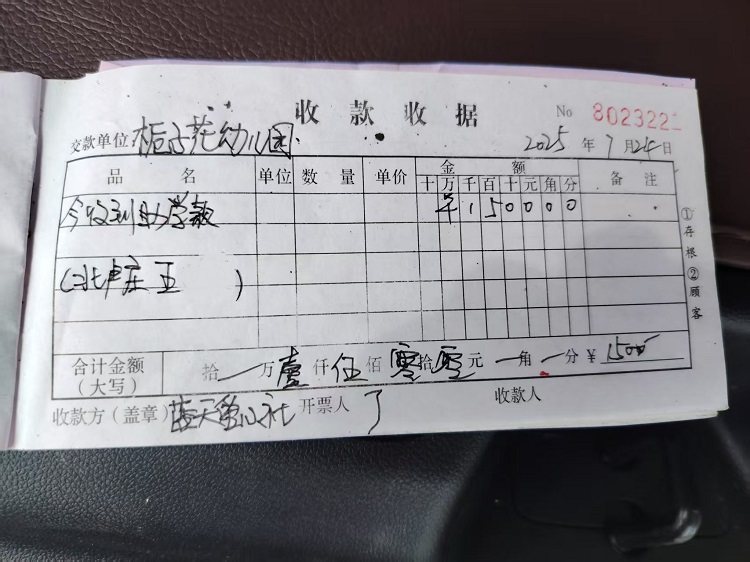 收款收据 No 802322
交款单位 栀子花幼儿园 2025年7月24日
品名 单位 数量 单价 金额 备注
十万千百十元角分
今收到助学款 1 5 0 0 0 0
(
)
合计金额 拾 一 万 壹 仟 伍 佰 零 拾 零 元 一 角 一 分 ¥ 1500
(大写)
收款方(盖章) 蓝天 社 开票人 收款人
①存根②顾客